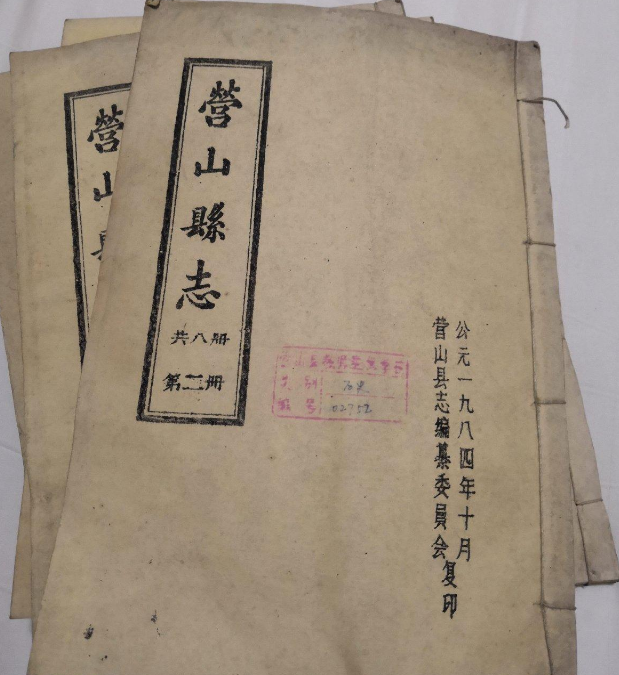 營山縣志
共八册
第二册
公元一九八四年十月
营山县志編纂委員会复印
类别
编号 02752
營山